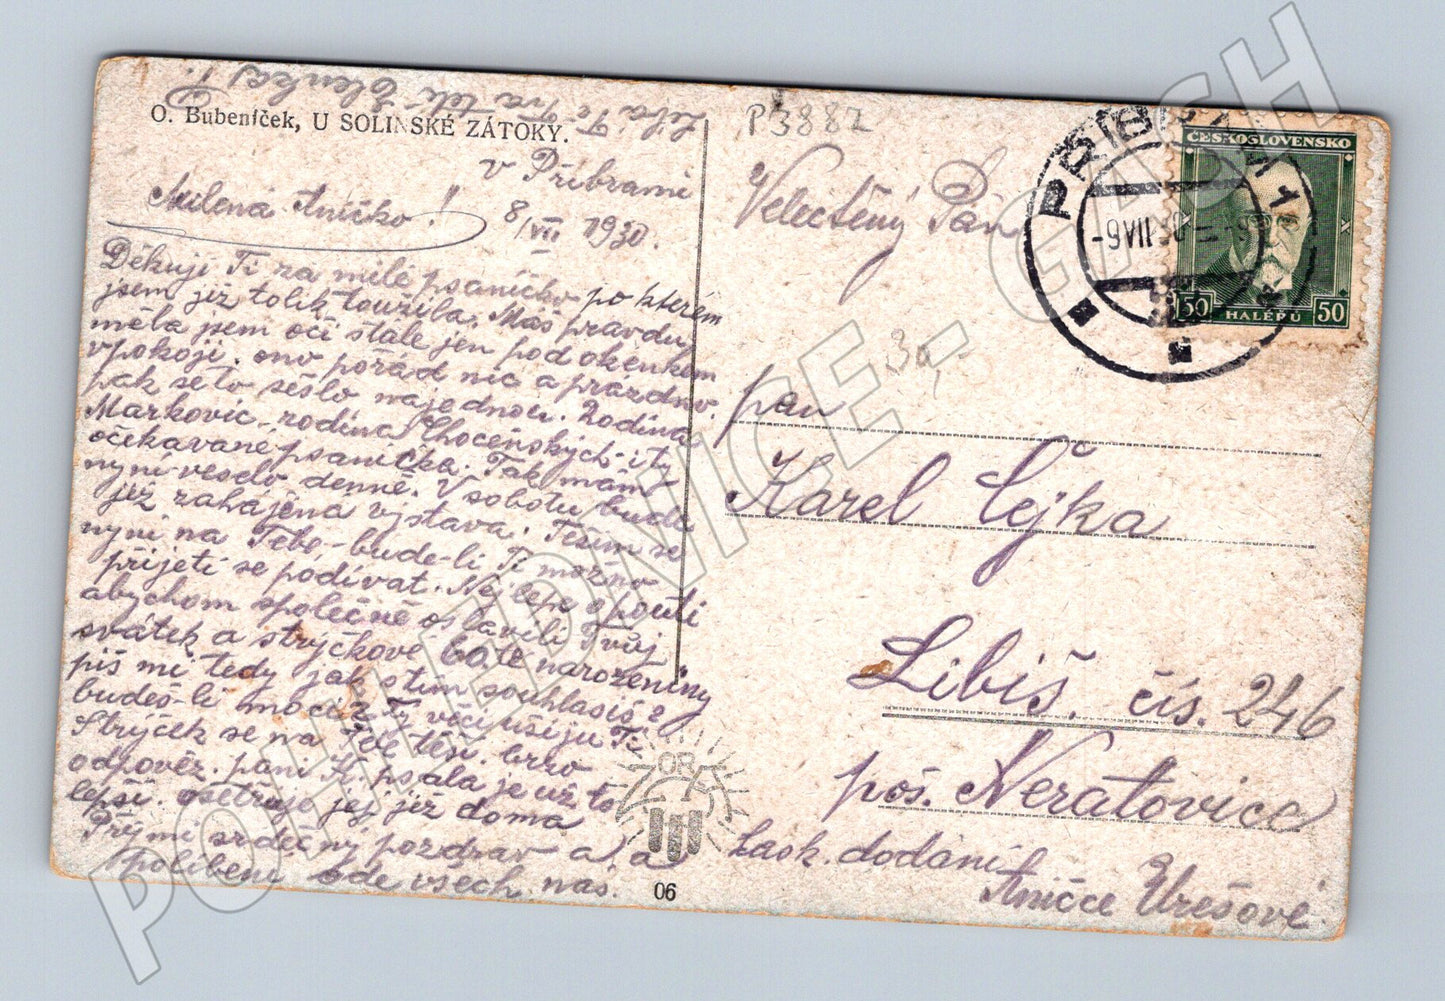 Líbá Tě Tvá teta Elenka
O. Bubeníček, U SOLINSKÉ ZÁTOKY.
v Příbrami
8/VII 1930.
Milená Aničko!
Děkuji Ti za milé psaníčko po kterém
jsem již tolik toužila. Máš pravdu,
měla jsem oči stále jen pod okenkem
v pokoji. ono pořád nic a prázdno.
pak se to sešlo najednou. Rodina
Markovic, rodina Chocenských i ty
očekávané psaníčka. Tak mám
nyní veselo denně. V sobotu bude
již zahájena výstava. Těším se
nyní na Tebe, bude-li Ti možno
přijeti se podívat. Nejlépe o pouti
abychom společně oslavili Tvůj
svátek a strýčkové 60té narozeniny
piš mi tedy jak s tím souhlasíš a
budeš-li moci
Strýček se na Tebe těší. brzo
odpověz. paní K. psala je už to
lepší. ošetřuje jej již doma
Přijmi srdečný pozdrav a
políbení ode všech nás.
P3882
Velectěný Pán
30,-
pan
Karel Čejka
Libiš. čís. 246
poš. Neratovice
Lask. dodání
Aničce Urešové
PŘÍBRAM 1
-9.VII.30
ČESKOSLOVENSKO
50 HALÉŘŮ 50
ORA
06
POHLEDNICE - CASH